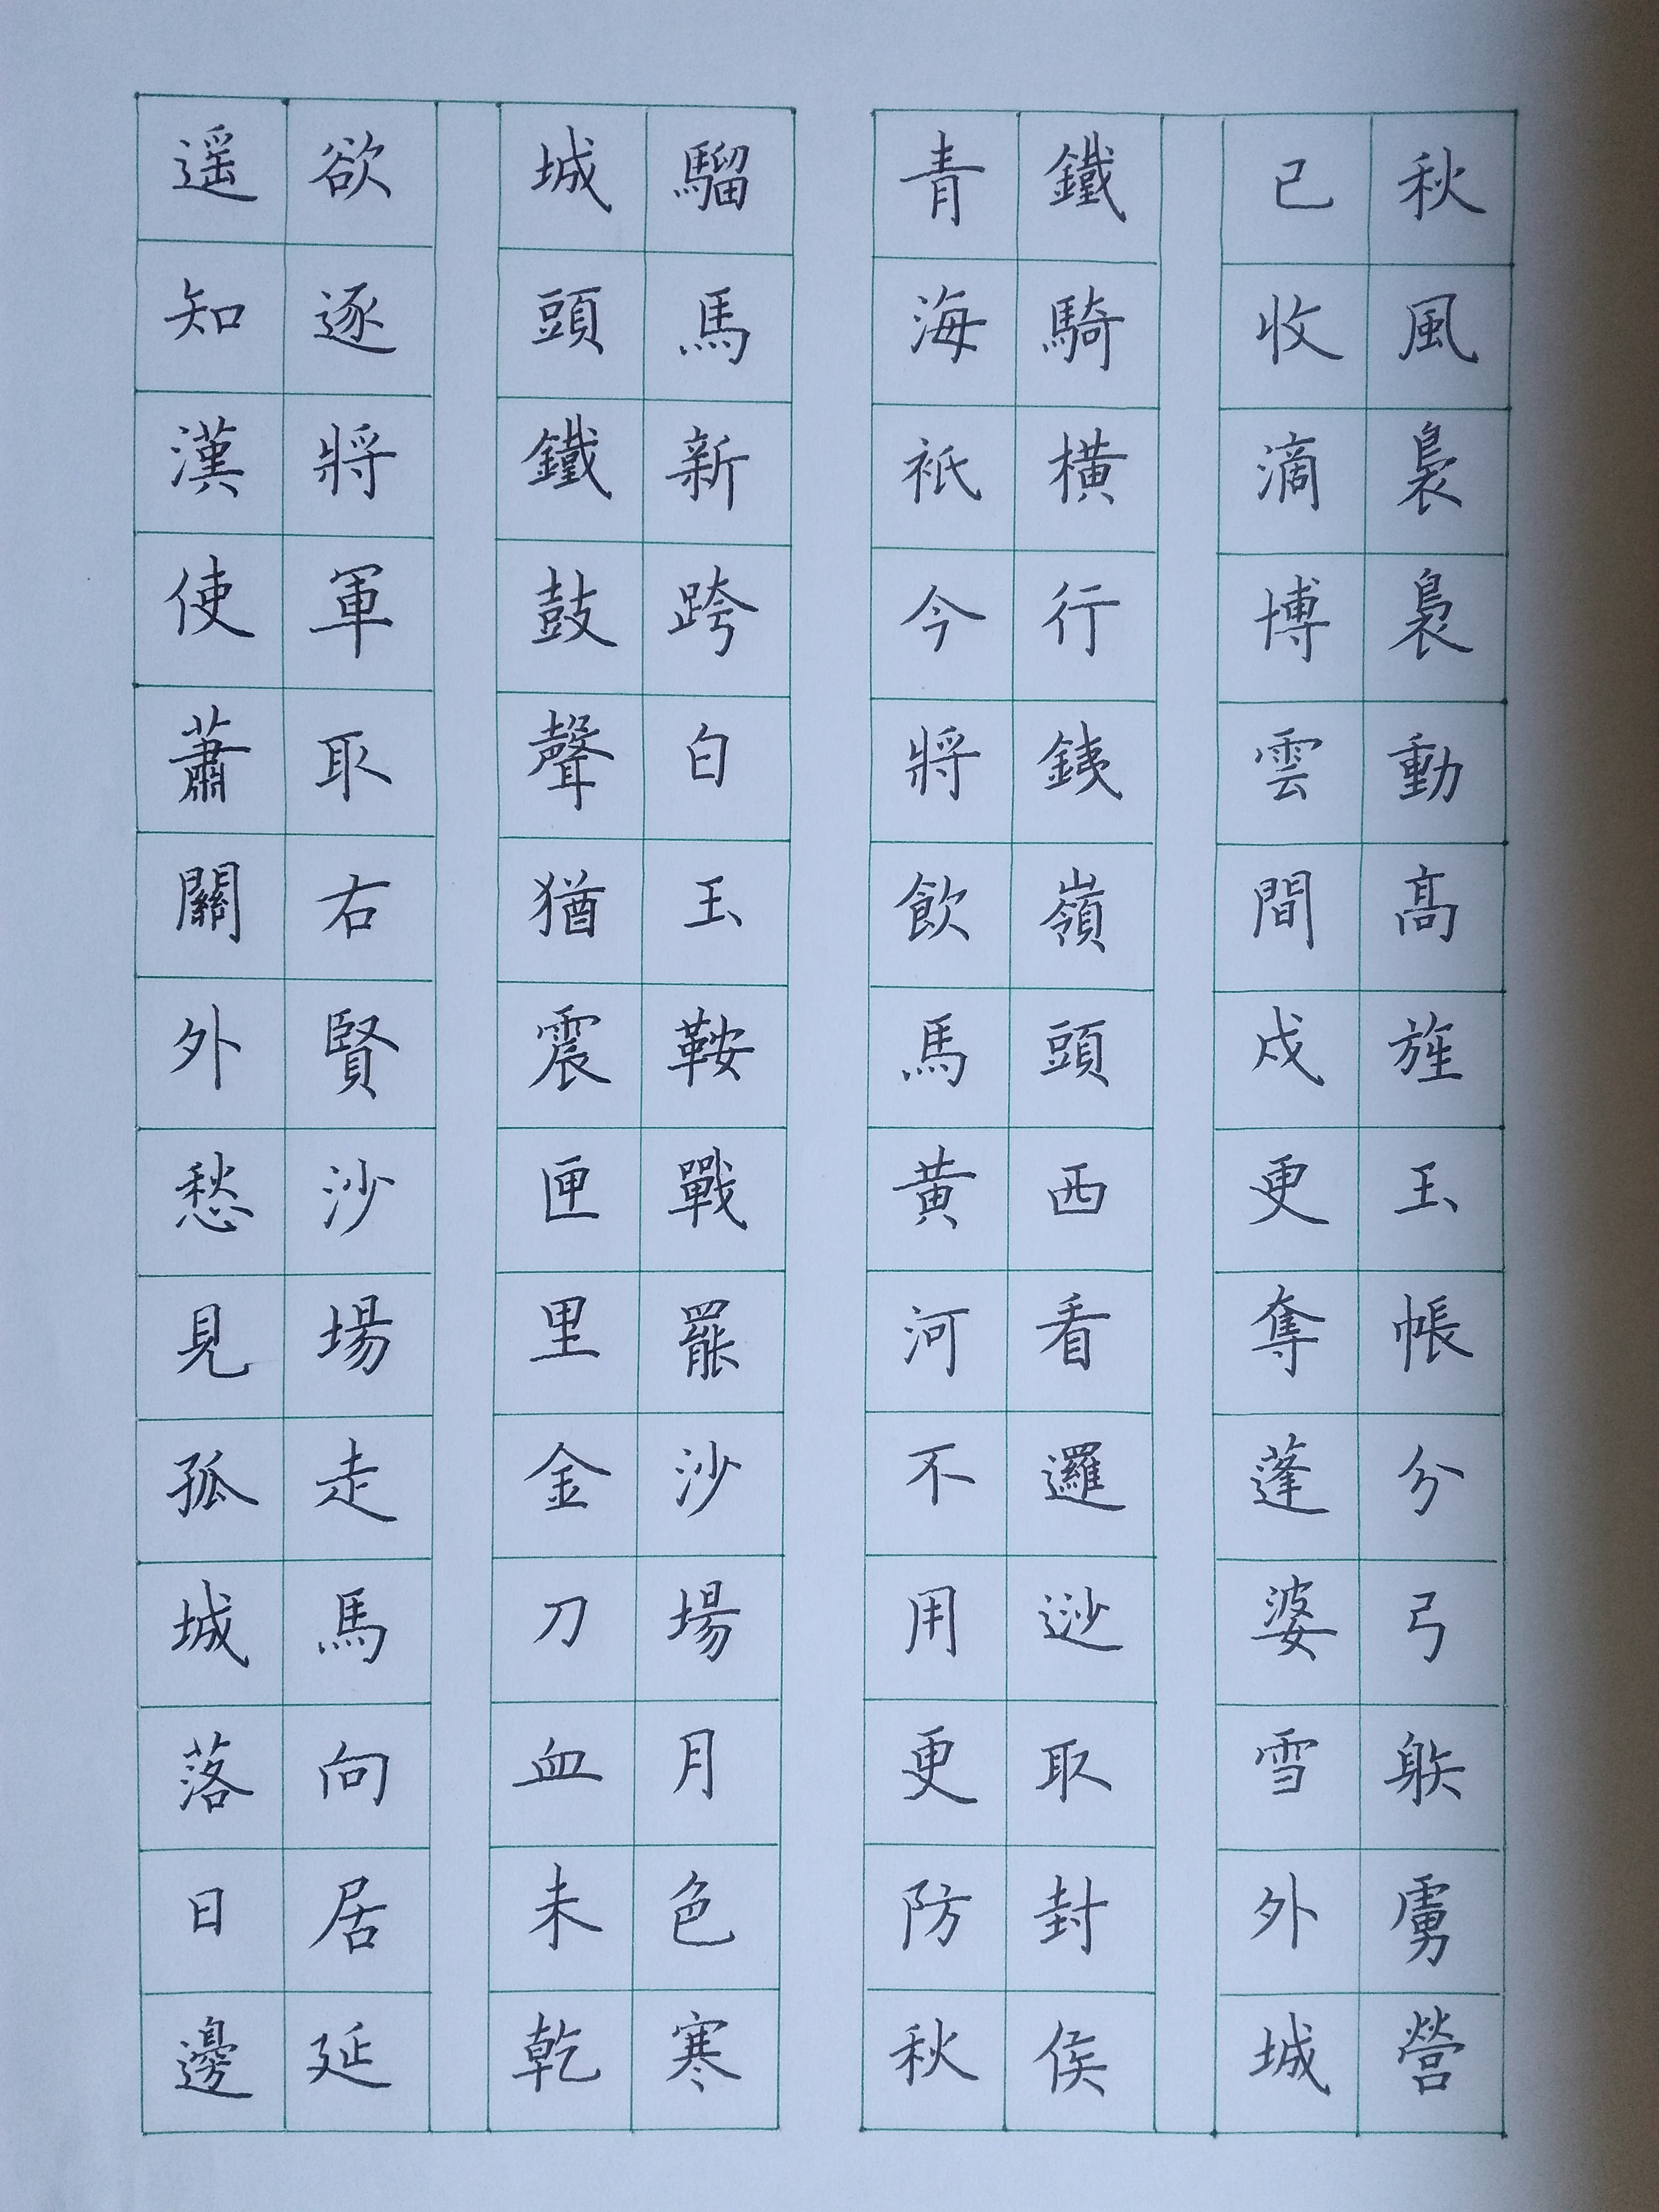 秋風裊裊動高旌玉帳分弓䠶虜營
已收滴博雲間戍更奪蓬婆雪外城
鐵騎橫行鐵嶺頭西看邏逤取封侯
青海衹今將飲馬黃河不用更防秋
騮馬新跨白玉鞍戰罷沙場月色寒
城頭鐵鼓聲猶震匣里金刀血未乾
欲逐將軍取右賢沙場走馬向居延
遥知漢使蕭關外愁見孤城落日邊